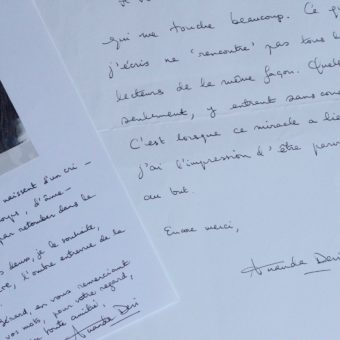 qui me touche beaucoup. Ce qu
j'écris ne "rencontre" pas tous l
lecteurs de la même façon. Quel
seulement, y entrent sans con
C'est lorsque ce miracle a lie
j'ai l'impression d'être parv
au but.
Encore merci,
Ananda Devi
naissent d'un cri –
corps, d'âme –
par retomber dans le
deux, je le souhaite,
l'autre entrevue de la
Gérard, en vous remerciant
vos mots, pour votre regard,
toute amitié,
Ananda Devi